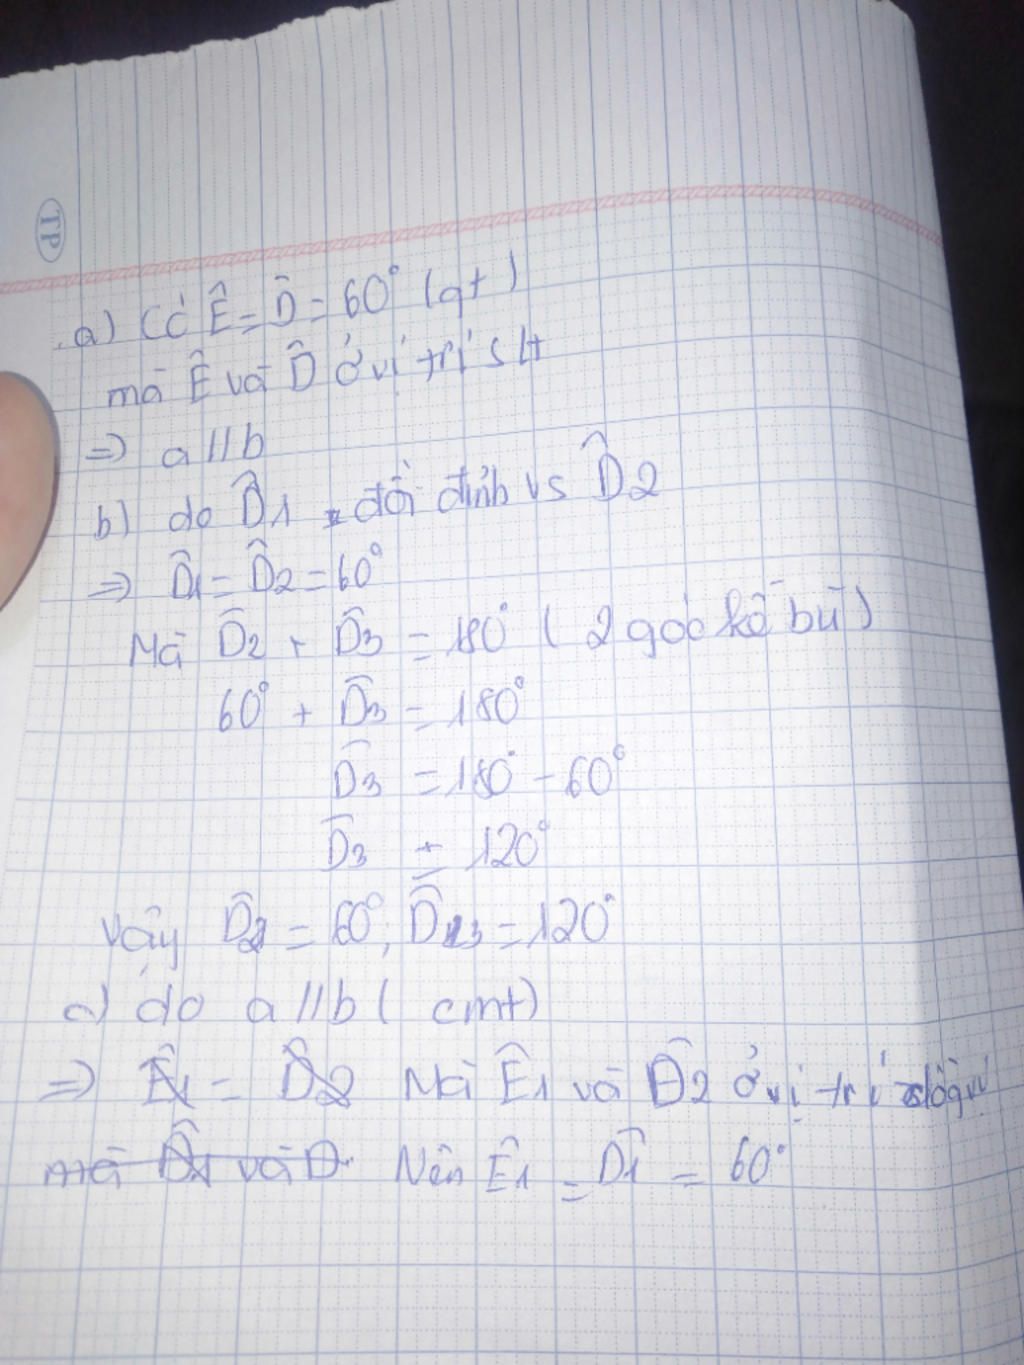 TP
a) Có Ê = D̂ = 60° (gt)
mà Ê và D̂ ở vị trí slt
=> a // b
b) do D̂1 đối đỉnh vs D̂2
=> D̂1 = D̂2 = 60°
Mà D̂2 + D̂3 = 180° ( 2 góc kề bù )
60° + D̂3 = 180°
D̂3 = 180° - 60°
D̂3 = 120°
Vậy D̂2 = 60°, D̂3 = 120°
c) do a // b ( cmt)
=> Ê1 = D̂2 Mà Ê1 và D̂2 ở vị trí
mà D̂1 và D Nên Ê1 = D̂1 = 60°